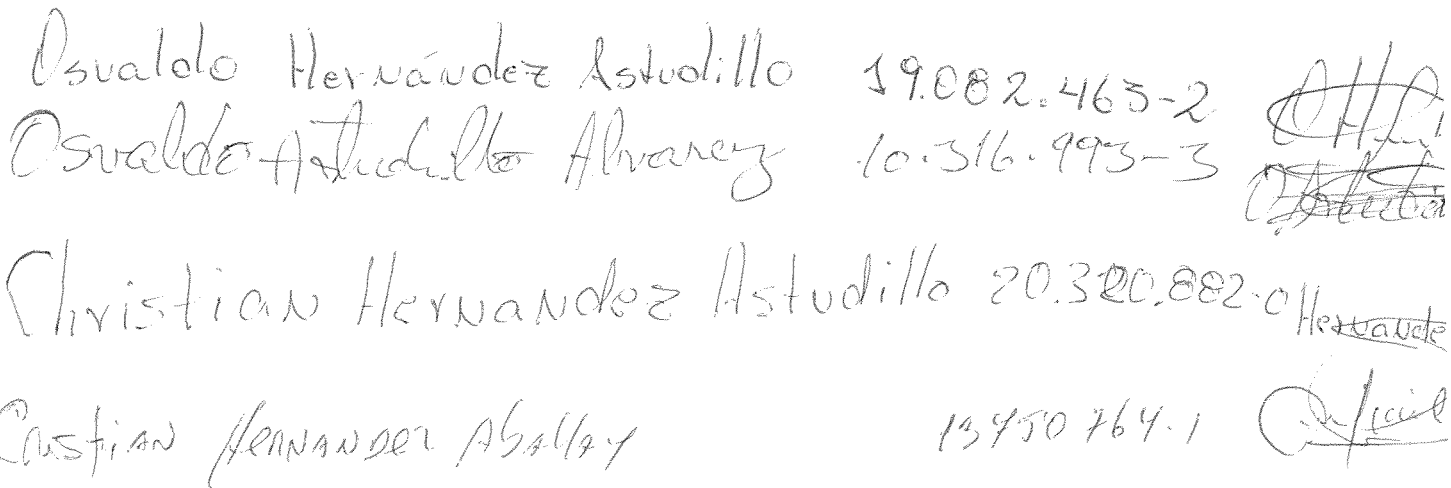 Osvaldo Hernández Astudillo 19.082.465-2
Osvaldo Astudillo Alvarez 10.316.993-3
Christian Hernandez Astudillo 20.320.882-0 Hernande
Cristian Hernandez Aballay 13450764-1